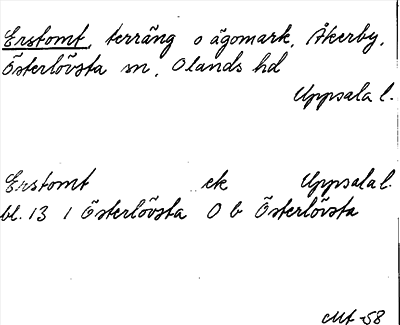 Erstomt, terräng o ägomark, Åkerby,
Österlövsta sn, Olands hd
Uppsala l.
Erstomt ek Uppsala l.
bl. 13 1 Österlövsta O b Österlövsta
-58